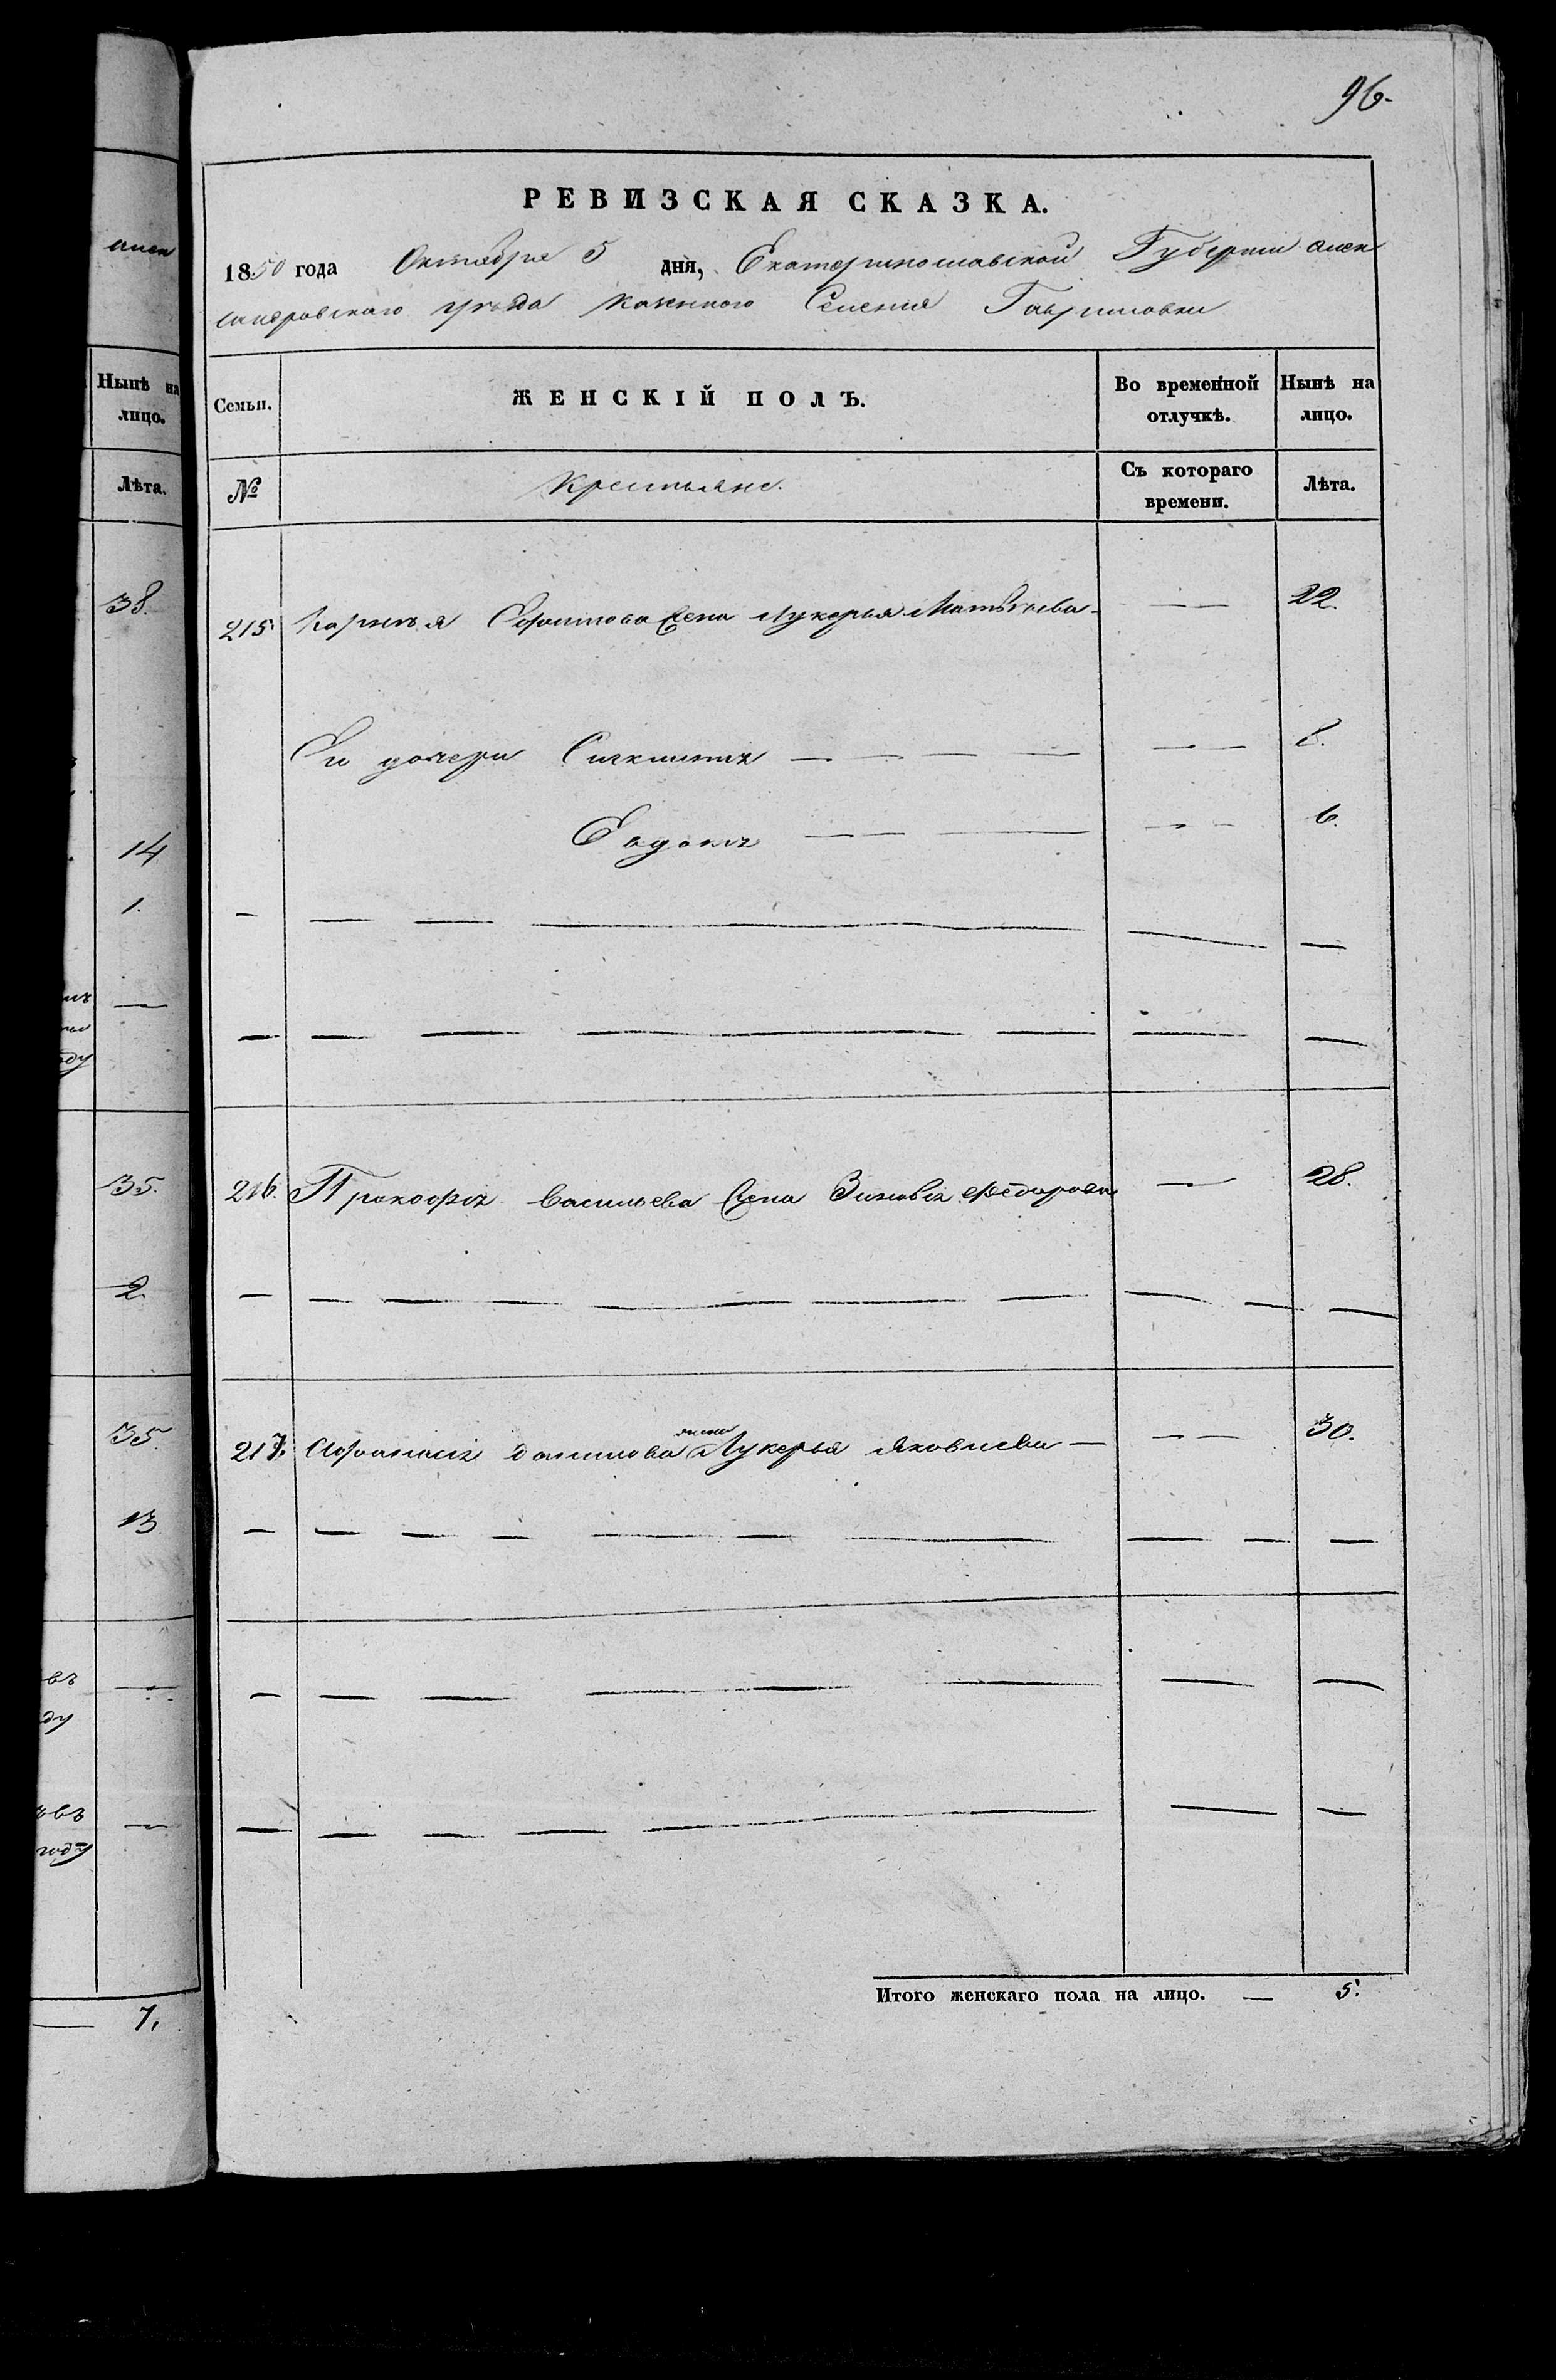 96.
РЕВИЗСКАЯ СКАЗКА.
1850 года Октября 5 дня, Екатеринославской Губернии Алек
сандровскаго уезда казенного Селения Гавриловки
Семьи. ЖЕНСКІЙ ПОЛЪ. Во временной отлучкѣ. Нынѣ на лицо.
№ Крестьяне. Съ котораго времени. Лѣта.
215. Корнея жена Лукерья Матвѣева — 22.
Ея дочери — 8.
6.
216. Прокофія Васильева жена Зиновія Федорова — 28.
жена
217. Афанасія Данилова Лукерья Яковлева — 30.
Итого женскаго пола на лицо. — 5.
алек
Нынѣ на
лицо.
Лѣта.
38.
14
1.
оду
35.
2.
35.
13
въ
ду
въ
году
7.